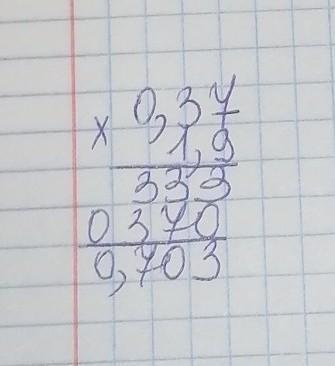 0,37
× 1,9
333
0370
0,703